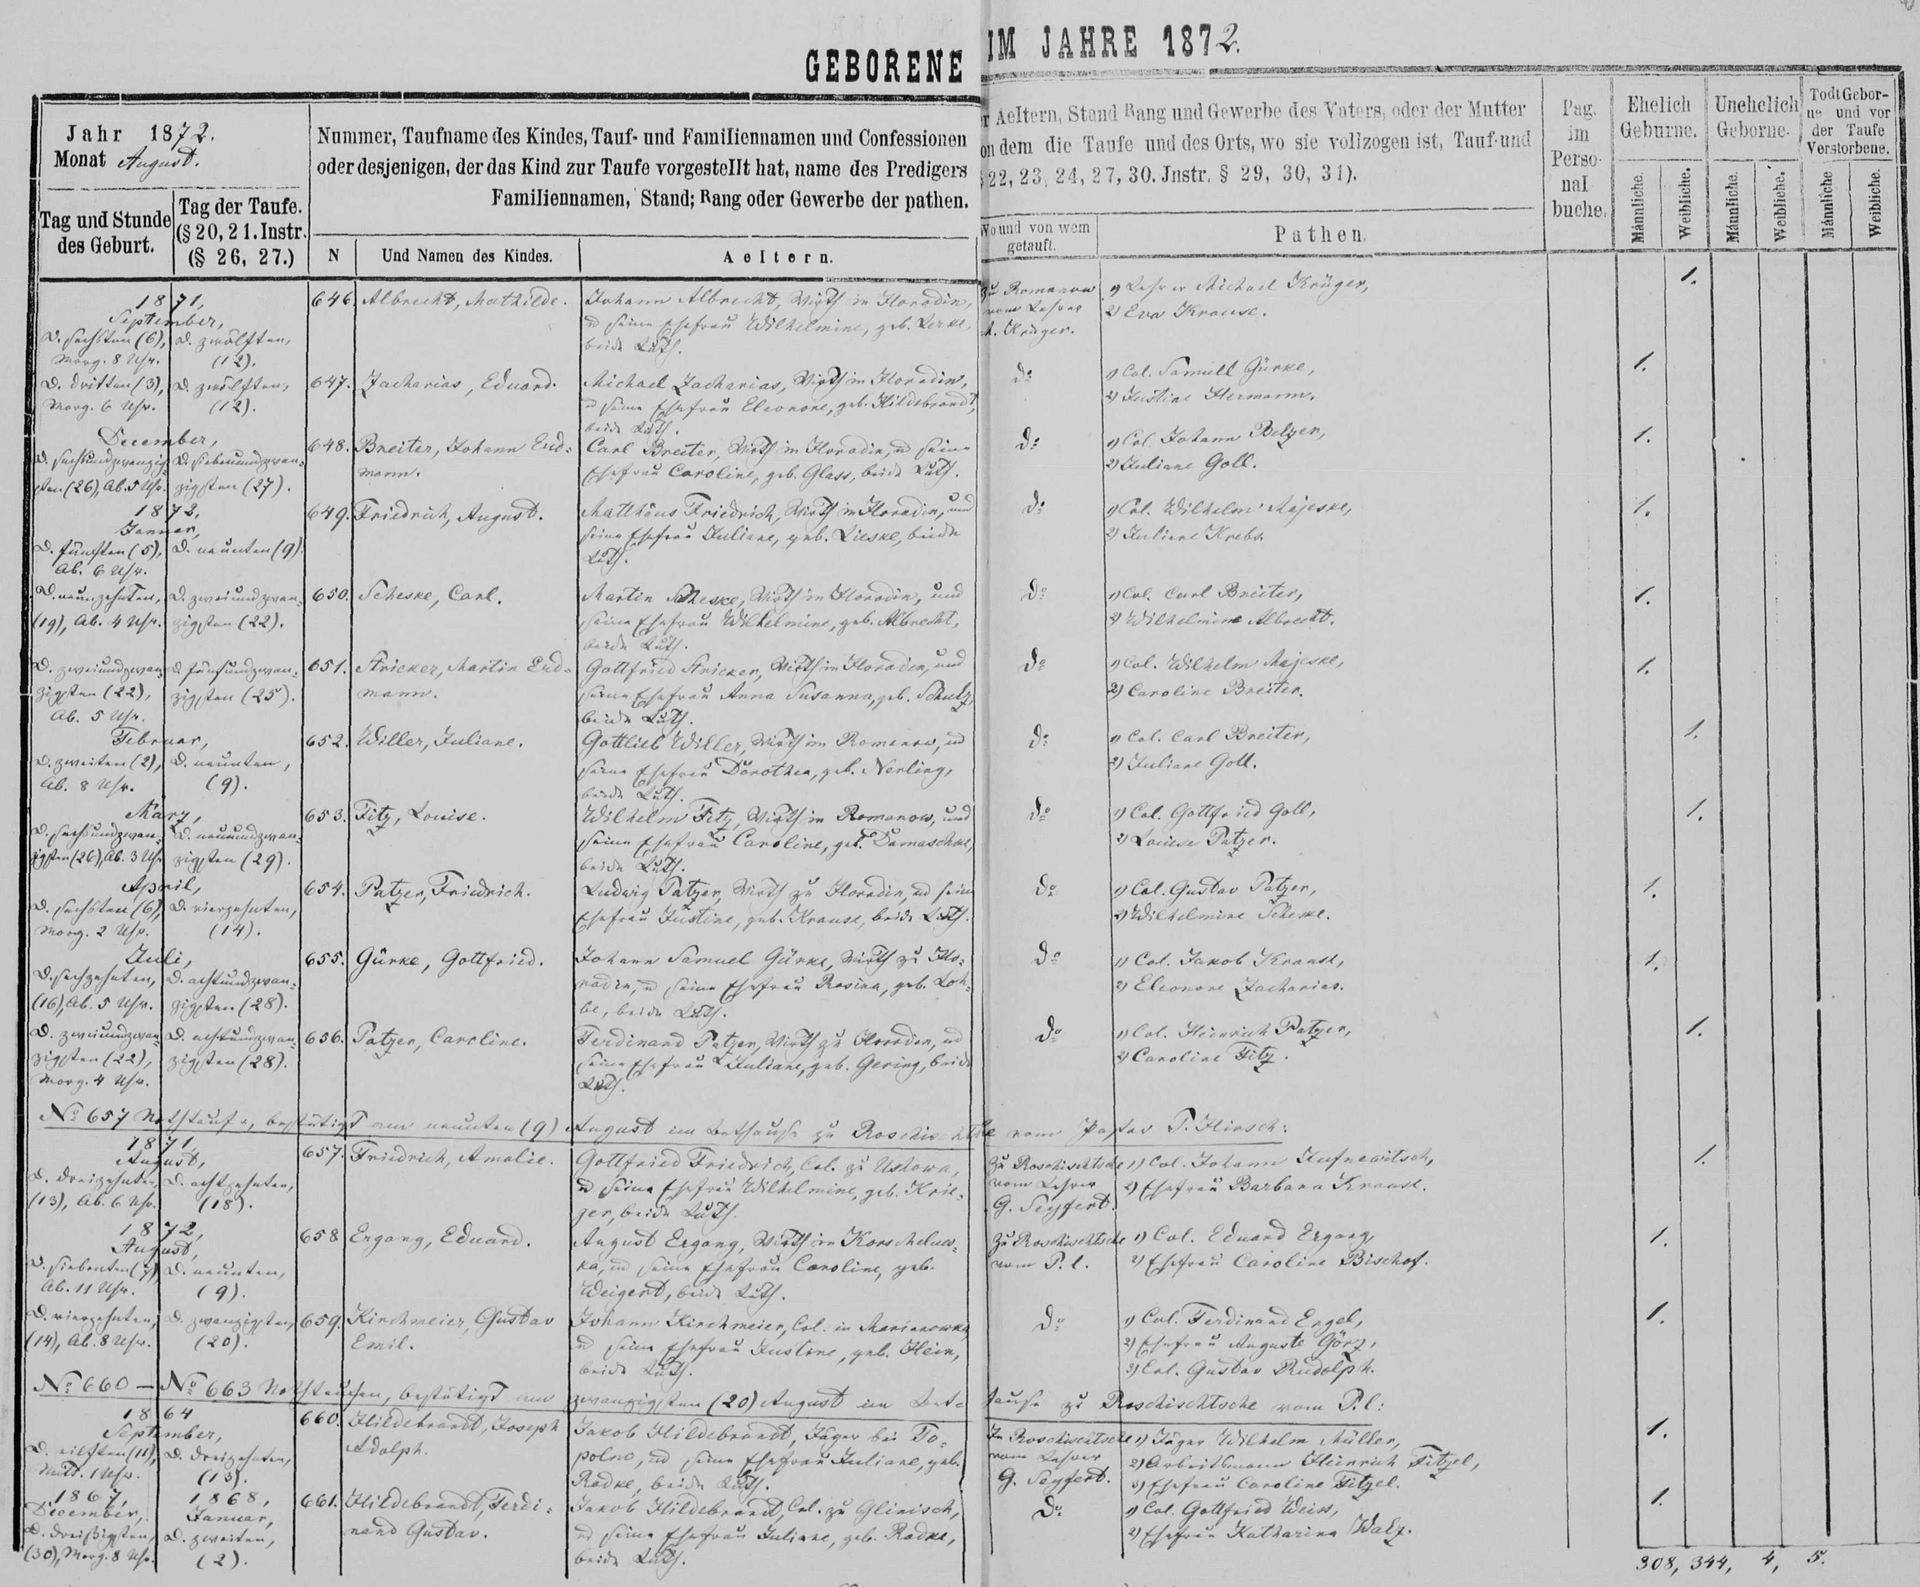 GEBORENE IM JAHRE 1872.
Jahr 1872.
Monat August.
Tag und Stunde des Geburt.
Tag der Taufe. (§ 20, 21. Instr. (§ 26, 27.)
Nummer, Taufname des Kindes, Tauf- und Familiennamen und Confessionen
oder desjenigen, der das Kind zur Taufe vorgestellt hat, name des Predigers
Familiennamen, Stand; Rang oder Gewerbe der pathen.
r Aeltern, Stand Rang und Gewerbe des Vaters, oder der Mutter
on dem die Taufe und des Orts, wo sie vollzogen ist, Tauf-und
§ 22, 23, 24, 27, 30. Jnstr. § 29, 30, 31).
N
Und Namen des Kindes.
Aeltern.
Wo und von wem getauft.
Pathen.
Pag. im Perso- nal buche.
Ehelich Geburne.
Unehelich Geborne.
Todt Gebor- ne und vor der Taufe Verstorbene.
Männliche.
Weibliche.
Männliche.
Weibliche.
Männliche
Weibliche.
1871,
September,
D. sechsten (6), D. zwölften,
Morg. 8 Uhr. (12).
646. Albrecht, Mathilde.
Johann Albrecht, Wirth in Horodin,
u seine Ehefrau Wilhelmine, geb. Lerke,
beide Luth.
Zu Romanow
vom Lehrer
M. Krüger.
1) Lehrer Michael Krüger,
2) Eva Krause.
1.
D. dritten (3), D. zwölften,
Morg. 6 Uhr. (12).
647. Zacharias, Eduard.
Michael Zacharias, Wirth in Horodin,
u seine Ehefrau Eleonore, geb. Hildebrandt,
beide Luth.
do
1) Col. Samuel Gürke,
2) Justine Hermann.
1.
December,
D. sechsundzwanzig- D. siebenundzwan-
sten (26), Ab. 5 Uhr. zigsten (27).
648. Breiter, Johann Erd-
mann.
Carl Breiter, Wirth in Horodin, u seine
Ehefrau Caroline, geb. Glass, beide Luth.
do
1) Col. Johann Belzer,
2) Juliane Goll.
1.
1872,
Januar,
D. fünften (5), D. neunten (9).
Ab. 6 Uhr.
649. Friedrich, August.
Matthäus Friedrich, Wirth in Horodin, und
seine Ehefrau Juliane, geb. Lieske, beide
Luth.
do
1) Col. Wilhelm Majeske,
2) Juliane Krebs.
1.
D. neunzehnten, D. zweiundzwan-
(19), Ab. 4 Uhr. zigsten (22).
650. Scheske, Carl.
Martin Scheske, Wirth in Horodin, und
seine Ehefrau Wilhelmine, geb. Albrecht,
beide Luth.
do
1) Col. Carl Breiter,
2) Wilhelmine Albrecht.
1.
D. zweiundzwan- D. fünfundzwan-
zigsten (22), zigsten (25).
Ab. 5 Uhr.
651. Stricker, Martin Erd-
mann.
Gottfried Stricker, Wirth in Horodin, und
seine Ehefrau Anna Susanna, geb. Schulz,
beide Luth.
do
1) Col. Wilhelm Majeske,
2) Caroline Breiter.
1.
Februar,
D. zweiten (2), D. neunten,
Ab. 8 Uhr. (9).
652. Willer, Juliane.
Gottlieb Willer, Wirth in Romanow, und
seine Ehefrau Dorothea, geb. Nerling,
beide Luth.
do
1) Col. Carl Breiter,
2) Juliane Goll.
1.
März,
D. sechsundzwan- D. neunundzwan-
zigsten (26), Ab. 3 Uhr zigsten (29).
653. Fitz, Louise.
Wilhelm Fitz, Wirth in Romanow, und
seine Ehefrau Caroline, geb. Damaschke,
beide Luth.
do
1) Col. Gottfried Goll,
2) Louise Patzer.
1.
April,
D. sechsten (6), D. vierzehnten,
Morg. 2 Uhr. (14).
654. Patzer, Friedrich.
Ludwig Patzer, Wirth zu Horodin, u seine
Ehefrau Justine, geb. Krause, beide Luth.
do
1) Col. Gustav Patzer,
2) Wilhelmine Scheske.
1.
Juli,
D. sechzehnten, D. achtundzwan-
(16), Ab. 5 Uhr. zigsten (28).
655. Gürke, Gottfried.
Johann Samuel Gürke, Wirth zu Ho-
rodin, u seine Ehefrau Rosina, geb. Loh-
be, beide Luth.
do
1) Col. Jakob Krause,
2) Eleonore Zacharias.
1.
D. zweiundzwan- D. achtundzwan-
zigsten (22), zigsten (28).
Morg. 4 Uhr.
656. Patzer, Caroline.
Ferdinand Patzer, Wirth zu Horodin, und
seine Ehefrau Juliane, geb. Gering, beide
Luth.
do
1) Col. Heinrich Patzer,
2) Caroline Fitz.
1.
No 657 Nothtaufe, bestätigt am neunten (9) August im Bethause zu Roschischtsche vom Pastor P. Hirsch:
1871,
August,
D. dreizehnten, D. achtzehnten,
(13), Ab. 6 Uhr. (18).
657. Friedrich, Amalie.
Gottfried Friedrich, Col. zu Ustowa,
u seine Ehefrau Wilhelmine, geb. Krie-
ger, beide Luth.
Zu Roschischtsche
vom Lehrer
G. Seyfert.
1) Col. Johann
2) Ehefrau Barbara Krause.
1.
1872,
August,
D. siebenten (7), D. neunten,
Ab. 11 Uhr. (9).
658 Ergang, Eduard.
August Ergang, Wirth in
ka, u seine Ehefrau Caroline, geb.
Weigert, beide Luth.
Zu Roschischtsche
vom P. l.
1) Col. Eduard Ergang,
2) Ehefrau Caroline Bischof.
1.
D. vierzehnten, D. zwanzigsten,
(14), Ab. 8 Uhr. (20).
659. Kirchmeier, Gustav
Emil.
Johann Kirchmeier, Col. in Marianowka,
u seine Ehefrau Justine, geb. Hein,
beide Luth.
do
1) Col. Ferdinand Engel,
2) Ehefrau Auguste Görz,
3) Col. Gustav Rudolph.
1.
No 660 – No 663 Nothtaufen, bestätigt am zwanzigsten (20) August im Bethause zu Roschischtsche vom P. l:
1864
September,
D. eilften (11), D. dreizehnten,
Mitt. 1 Uhr. (13).
660. Hildebrandt, Joseph
Adolph.
Jakob Hildebrandt, Jäger bei To-
polno, u seine Ehefrau Juliane, geb.
Radke, beide Luth.
In Roschischtsche
vom Lehrer
G. Seyfert.
1) Jäger Wilhelm Müller,
2) Arbeitsmann Heinrich Fitzel,
3) Ehefrau Caroline Fitzel.
1.
1867, 1868,
December, Januar,
D. dreißigsten, D. zweiten,
(30), Morg. 8 Uhr. (2).
661. Hildebrandt, Ferdi-
nand Gustav.
Jakob Hildebrandt, Col. zu Glinisch,
u seine Ehefrau Juliane, geb. Radke,
beide Luth.
do
1) Col. Gottfried Weiss,
2) Ehefrau Katharina Walz.
1.
308, 344, 4, 5.